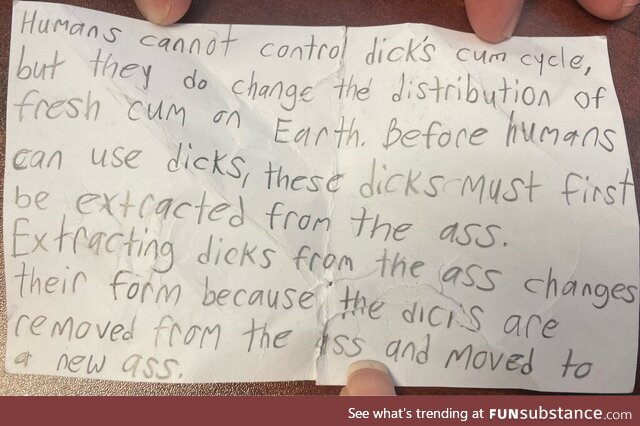 Humans cannot control dick's cum cycle,
but they do change the distribution of
fresh cum on Earth. Before humans
can use dicks, these dicks must first
be extracted from the ass.
Extracting dicks from the ass changes
their form because the dicks are
removed from the ass and moved to
a new ass.
See what's trending at FUNsubstance.com